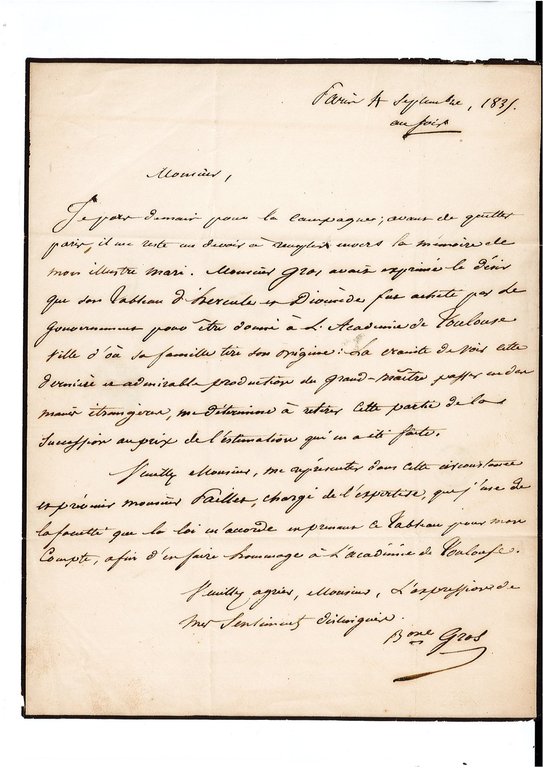 Paris 4 Septembre, 1835.
au soir
Monsieur,
Je pars demain pour la campagne; avant de quitter
paris, il me reste un devoir à remplir envers la mémoire de
mon illustre mari. Monsieur Gros avait exprimé le désir
que son Tableau d'hercule et Diomède fut acheté par le
Gouvernement pour être donné à L'Académie de Toulouse
ville d'où sa famille tire son origine: La crainte de voir cette
dernière et admirable production du grand-maître passer en des
mains étrangères, me détermine à retirer cette partie de la
succession au prix de l'estimation qui en a été faite.
Veuillez Monsieur, me représenter dans cette circonstance
et prévenir monsieur Paillet, chargé de l'expertise, que j'use de
la faculté que la loi m'accorde en prenant ce Tableau pour mon
Compte, afin d'en faire hommage à L'académie de Toulouse.
Veuillez agréer, Monsieur, L'expression de
mes Sentiments distingués.
Bonne Gros